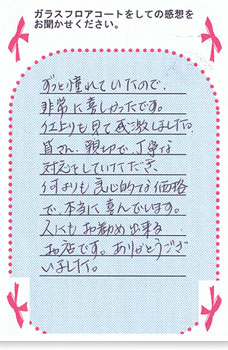 ガラスフロアコートをしての感想を
お聞かせください。
ずっと憧れていたので、
非常に喜しかったです。
仕上りも見て感激しました。
皆さん、親切で、丁寧な
対応をしていただき、
何よりも良心的な価格
で、本当に喜んでいます。
人にもお勧め出来る
お店です。ありがとうござ
いました。